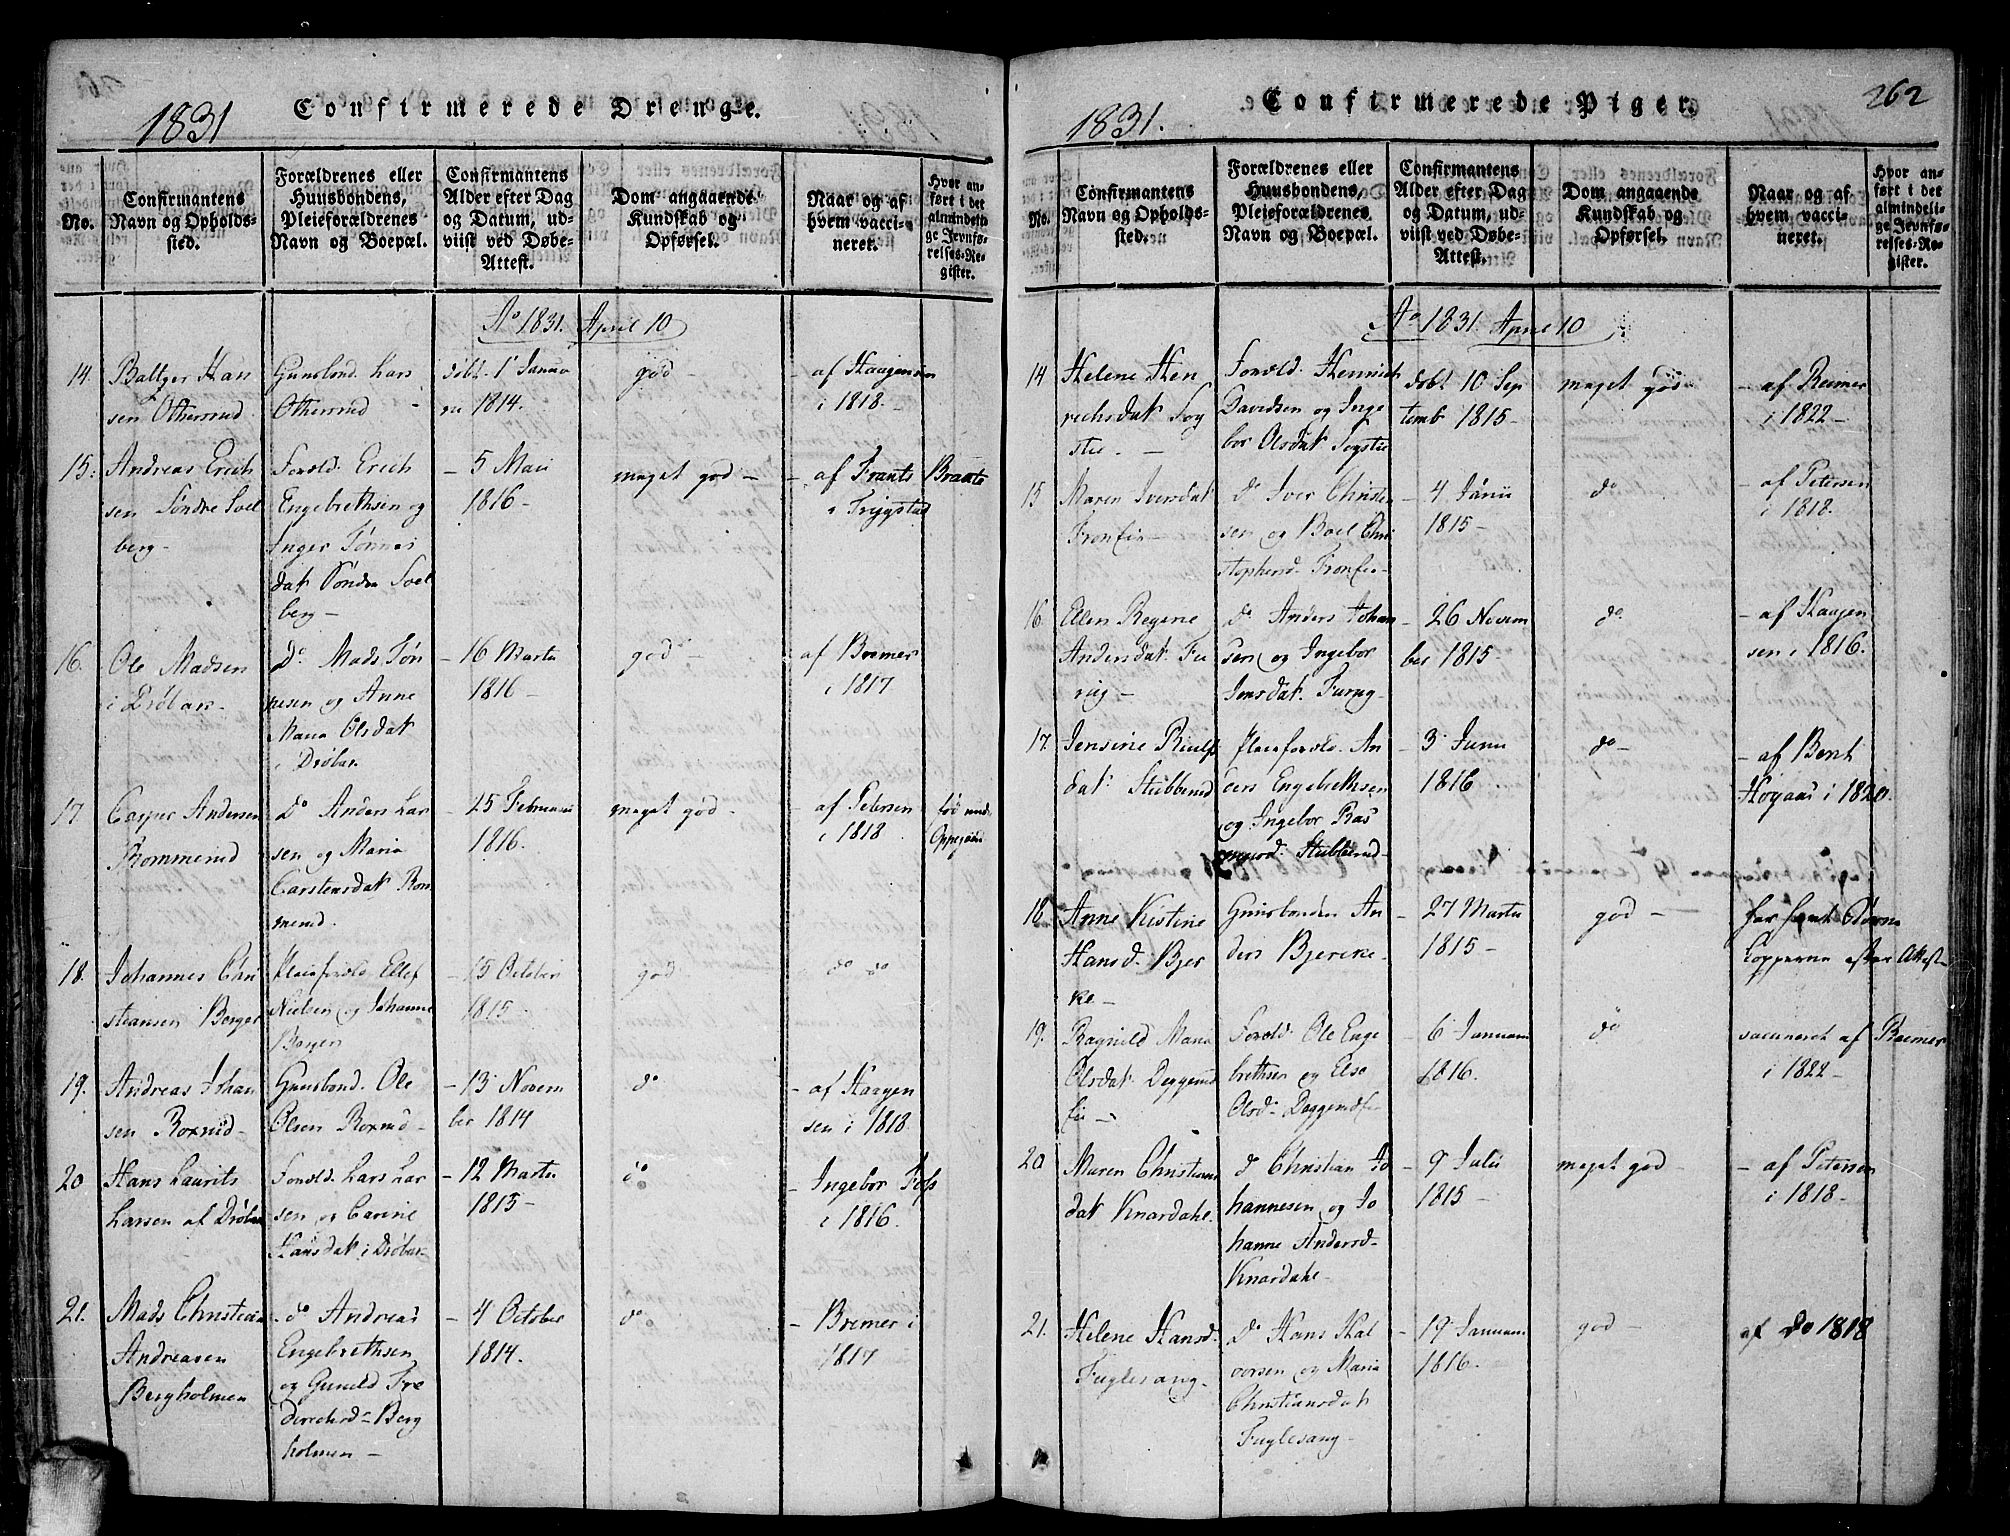 1831
Confirmerede Drenge.
No.
Confirmantens Navn og Opholds-sted.
Forældrenes eller Huusbondens, Pleieforældrenes Navn og Boepæl.
Confirmantens Alder efter Dag og Datum, ud-viist ved Døbe-Attest.
Dom angaaende Kundskab og Opførsel.
Naar og af hvem vacci-neret.
Hvor an-ført i det almindeli-ge Jevnfø-relses-Re-gister.
Ao 1831. April 10
14. Baltzer Han
sen Ottersrud
Larsgaard
Ottersrud
døbt 1 Janua
ri 1814.
god -
- af Haagensen
i 1818. -
15. Andreas Erich
sen Søndre Soel
berg -
Foræld. Erich
Engebrethsen og
Inger Tønnes
dat Søndre Soel
berg -
- 5 Maii
1816 -
meget god -
- af Frants Brants
i Trygstad
16. Ole Madsen
i Drøbak -
Do Mads Tøn
nesen og Anne
Maria Olsdat
i Drøbak
- 16 Marti
1816 -
god -
af Bremer
i 1817
17 Casper Andersen
Rommerud
do Anders Lar
sen og Maria
Carstensdat Rom
merud.
- 25 Februarii
1816.
meget god.
- af Petersen
i 1818
18. Johannes Chri
stiansen Berger
Pleieforæld. Ellef
Nielsen og Johanne
Berger
- 15 October
1815 -
god
do do
19. Andreas Johan
sen Roxrud -
Huusbond. Ole
Olsen Roxrud -
- 13 Novem
ber 1814
do
- af Haagen
sen i 1818.
20 Hans Laurits
Larsen af Drøbak
Foræld. Lars Lar
sen og Carine
Hansdat i Drøbak
- 12 Marti
1815 -
do
- Ingebor Foss
i 1816.
21. Mads Christian
Andreasen
Bergholmen
do Andreas
Engebrethsen
og Gunild Fre
derichsd - Berg
holmen -
- 4 October
1814.
do
- Bremer i
1817
262
1831.
Confirmerede Piger.
No.
Confirmantens Navn og Opholds-sted.
Forældrenes eller Huusbondens, Pleieforældrenes Navn og Boepæl.
Confirmantens Alder efter Dag og Datum, ud-viist ved Døbe-Attest.
Dom angaaende Kundskab og Opførsel.
Naar og af hvem vacci-neret.
Hvor an-ført i det almindeli-ge Jevnfø-relses-Re-gister.
Ao 1831 April 10
14 Helene Hen
richsdat Sog
stie. -
Foræld. Hennrich
Davidsen og Inge
bor Olsdat Sogstie
døbt 10 Sep
temb 1815 -
meget god -
- af Bremer
i 1822 -
15 Maren Iversdat
Fronfin -
do Iver Christen
sen og Boel Chri
stophersd. Fronfin -
- 4 Junii
1815 -
do
- af Petersen
i 1818.
16. Elen Regine
Andersdat. Fu
rug -
do Anders Johan
sen og Ingebor
Jonsdat. Furug -
- 26 Novem
ber 1815 -
do
- af Haagen
sen i 1816.
17. Jensine Riulfs
dat. Stubberud
Pleieforæld. An
ders Engebrethsen
og Ingebor Ras
musd. Stubberud -
- 3 Junii
1816
do -
- af Bent
Høyaas i 1820.
18. Anne Kistine
Hansd. Bjer
ke -
Huusbonden An
ders Bjerke -
- 27 Marti
1815 -
god -
har havt
Kopperne efter Attest -
19. Ragnild Maria
Olsdat. Deggerud
fie -
Foræld. Ole Enge
brethsen og Else
Olsd.
- 6 Januarii
1816.
do
vaccineret af Bremer
i 1822 -
20 Maren Christians
dat Knardahl.
do Christian Jo
hannesen og Jo
hanne Andersd -
Knardahl -
- 9 Julii
1815 -
meget god -
- af Petersen
i 1818 -
21. Helene Hansd.
Fuglesang -
do Hans Hal
vorsen og Maria
Christiansdat
Fuglesang -
- 19 Januarii
1816.
god -
af do 1818